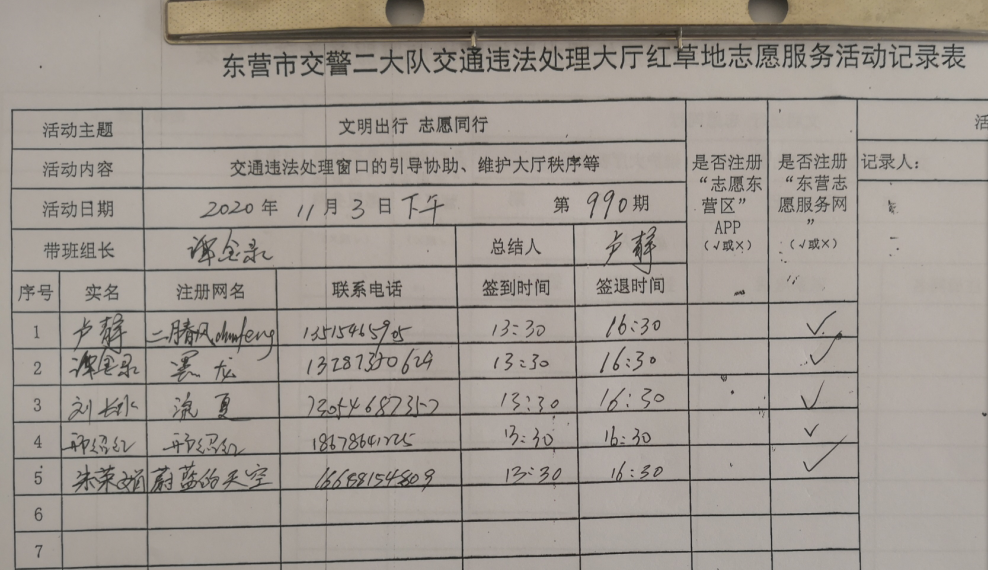 东营市交警二大队交通违法处理大厅红草地志愿服务活动记录表
活动主题 文明出行 志愿同行
活动内容 交通违法处理窗口的引导协助、维护大厅秩序等
活动日期 2020年 11月3日下午 第 990期
带班组长 谭金录 总结人 卢静
是否注册“志愿东营区”APP(√或×)
是否注册“东营志愿服务网”(√或×)
活
记录人:
序号 实名 注册网名 联系电话 签到时间 签退时间
1 卢静 13:30 16:30 √
2 谭金录 13287350624 13:30 16:30 √
3 流夏 13:30 16:30 √
4 13:30 16:30 √
5 朱荣娟 蔚蓝的天空 13:30 16:30 √
6
7